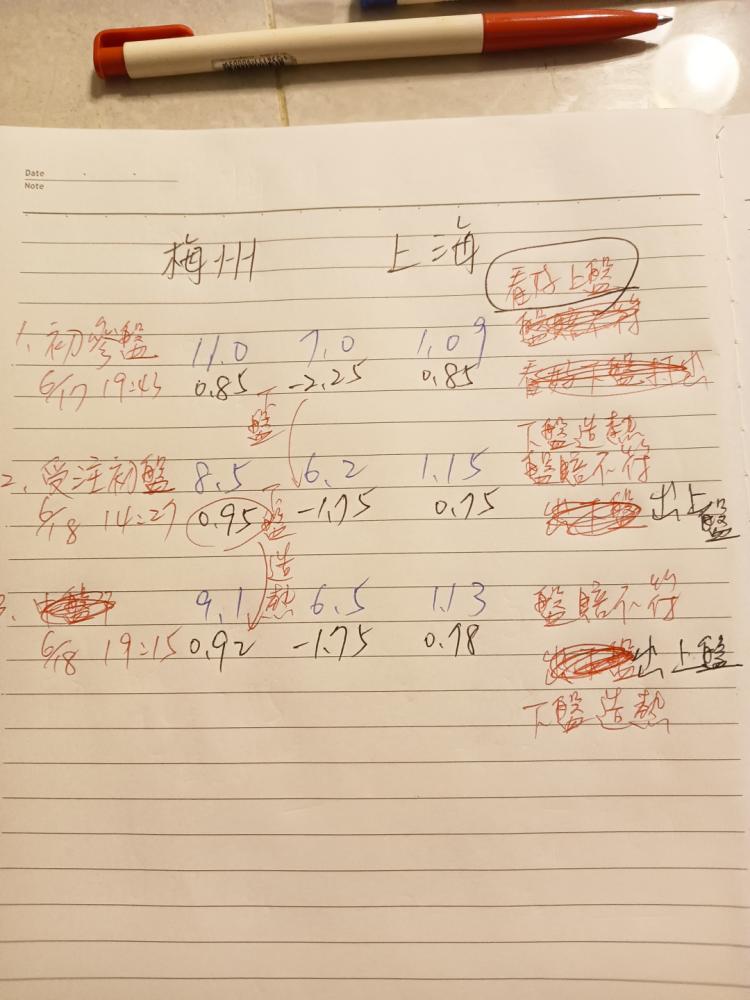 Date
Note
梅州 上海
看好上盤
1、初參盤 11.0 7.0 1.09
6/17 19:43 0.85 -2.25 0.85
下盤
下盤造熱
2、受注初盤 8.5 6.2 1.15 盤賠不符
6/18 14:27 0.95 -1.75 0.75 出上盤
下盤造熱
3、 9.1 6.5 1.13 盤賠不符
6/18 19:15 0.92 -1.75 0.78 出上盤
下盤造熱